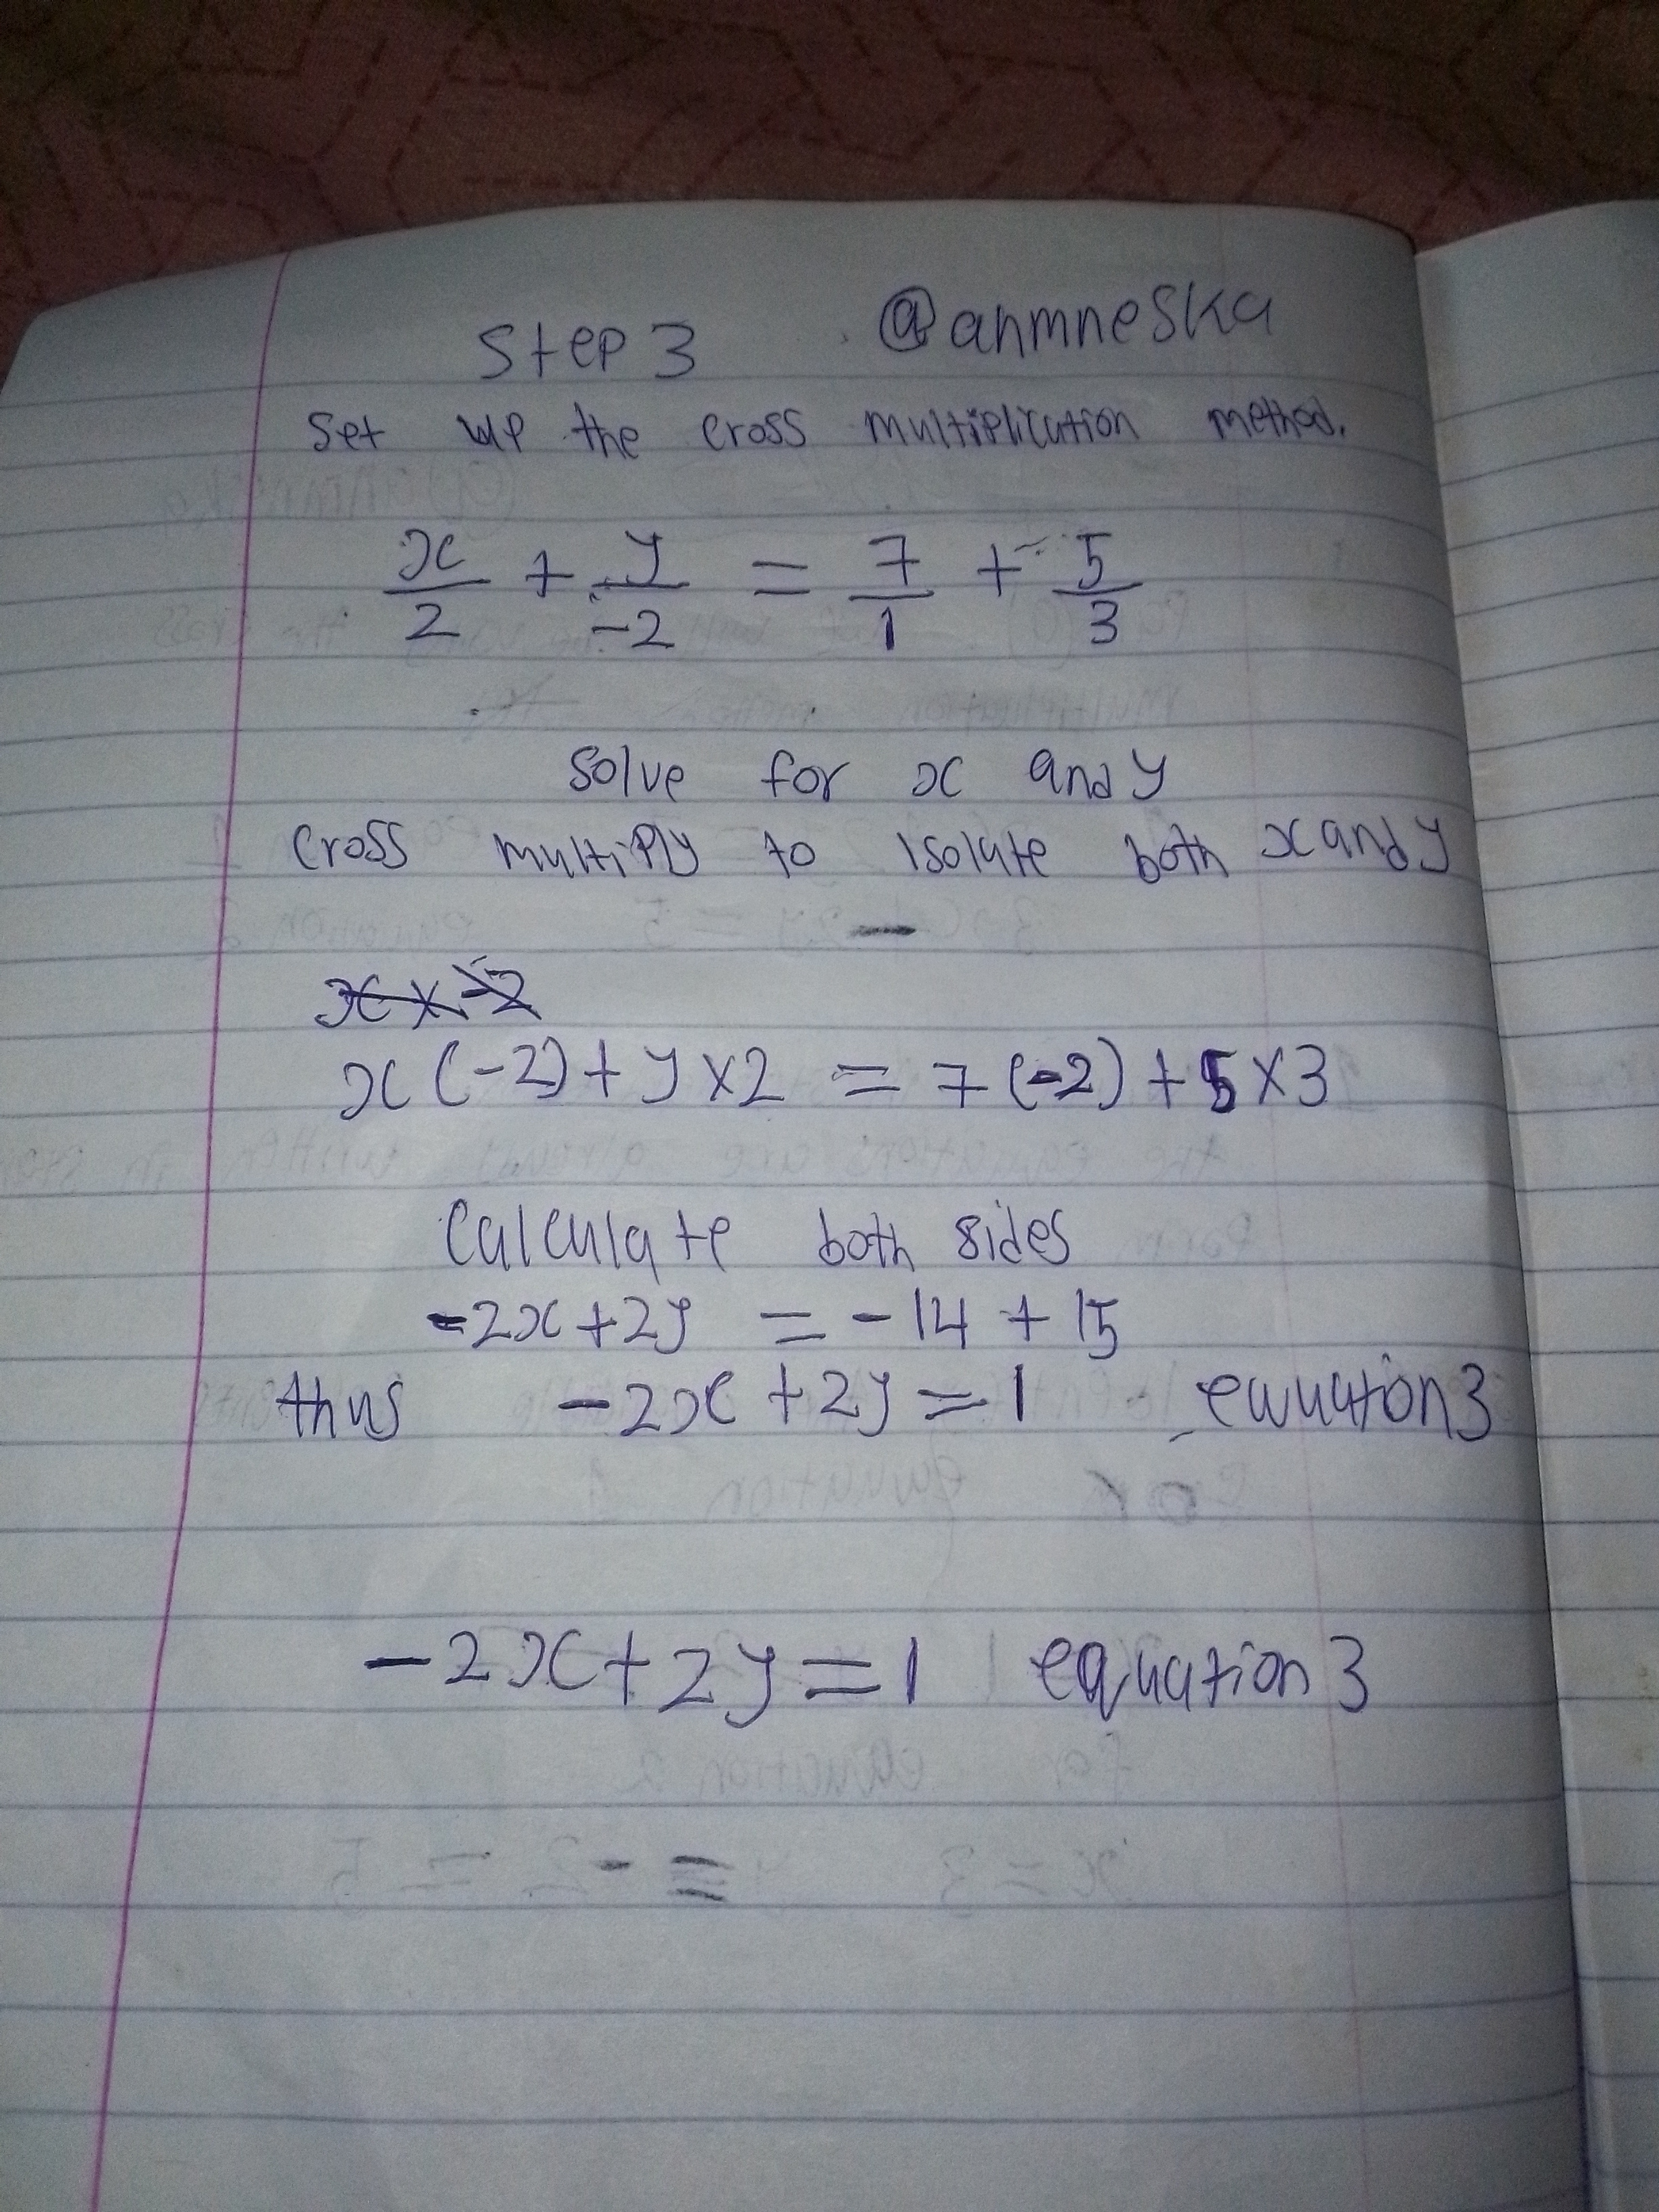 Step 3 @anmneska
Set up the cross multiplication method.
x/2 + y/-2 = 7/1 + 5/3
Solve for x and y
Cross multiply to isolate both x and y
x x -2
x (-2) + y x 2 = 7 (-2) + 5 x 3
Calculate both sides
-2x + 2y = -14 + 15
thus -2x + 2y = 1 equation 3
-2x + 2y = 1 equation 3